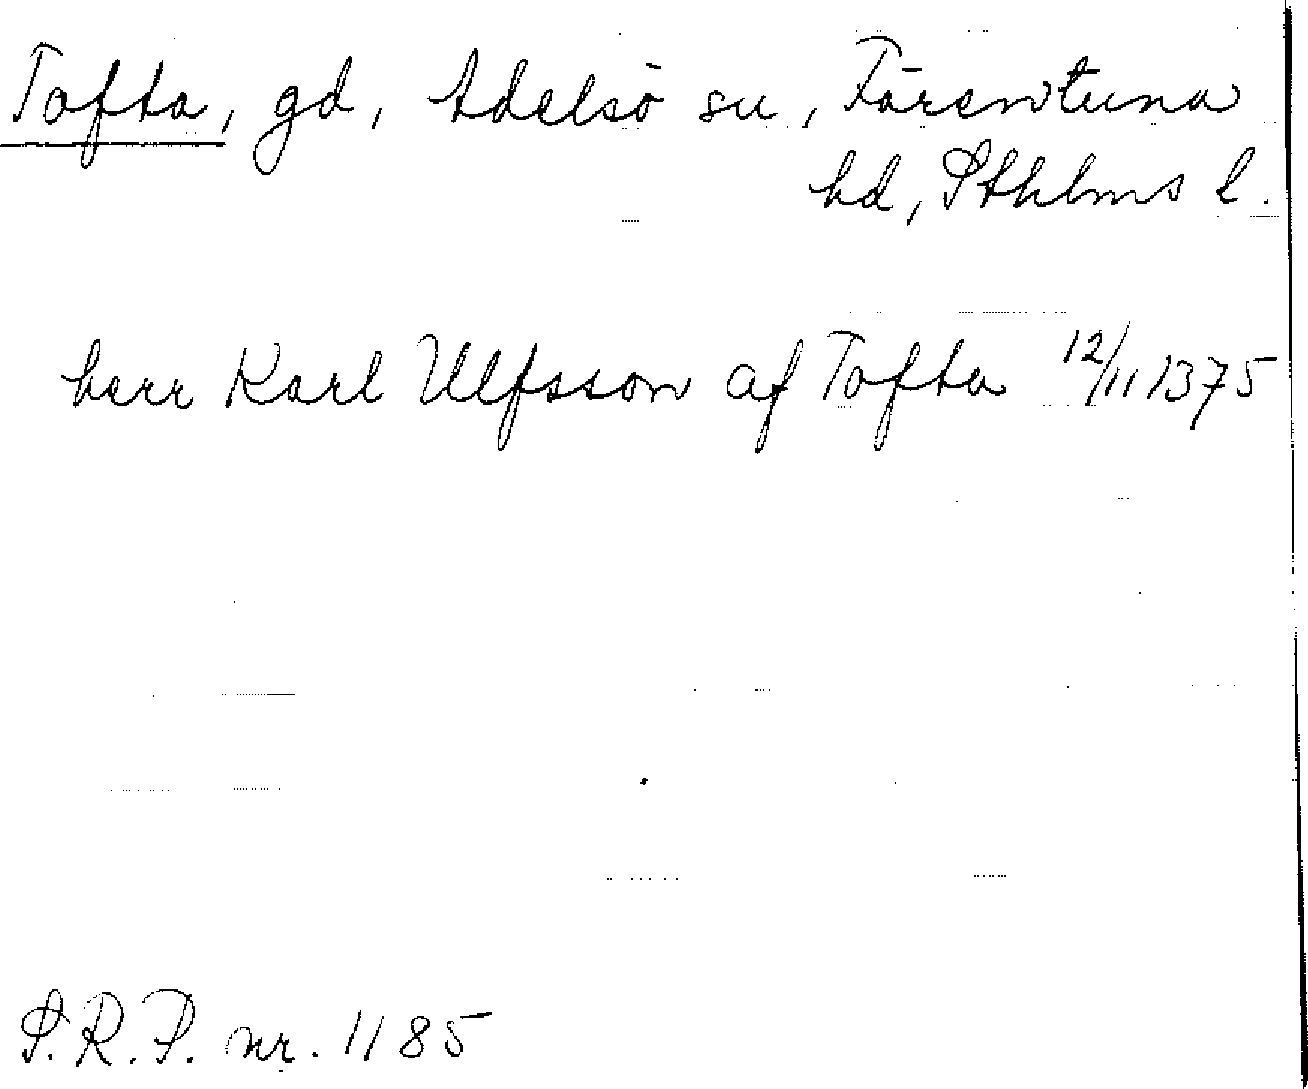 Tofta, gd, Adelsö sn, Färentuna
hd, Sthlms l.
herr Karl Ulfsson af Tofta 12/11 1375
S.R.P. nr. 1185